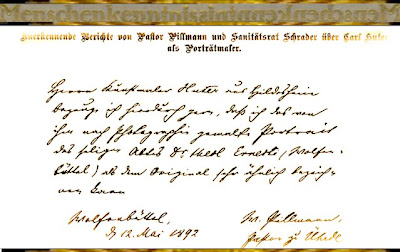 Menschenkenntnis
Anerkennende Berichte von Pastor Pillmann und Sanitätsrat Schrader über Carl Huter
als Porträtmaler.
Herrn Kunstmaler Huter aus Hildesheim
bezeuge ich hierdurch gern, daß ich das von
ihm nach Photographie gemalte Portrait
des seligen Abts Dr. Ernesti (Wolfen-
büttel) als dem Original sehr ähnlich bezeich-
nen kann
Wolfenbüttel,
d. 12. Mai 1892
W. Pillmann,
Pastor z.